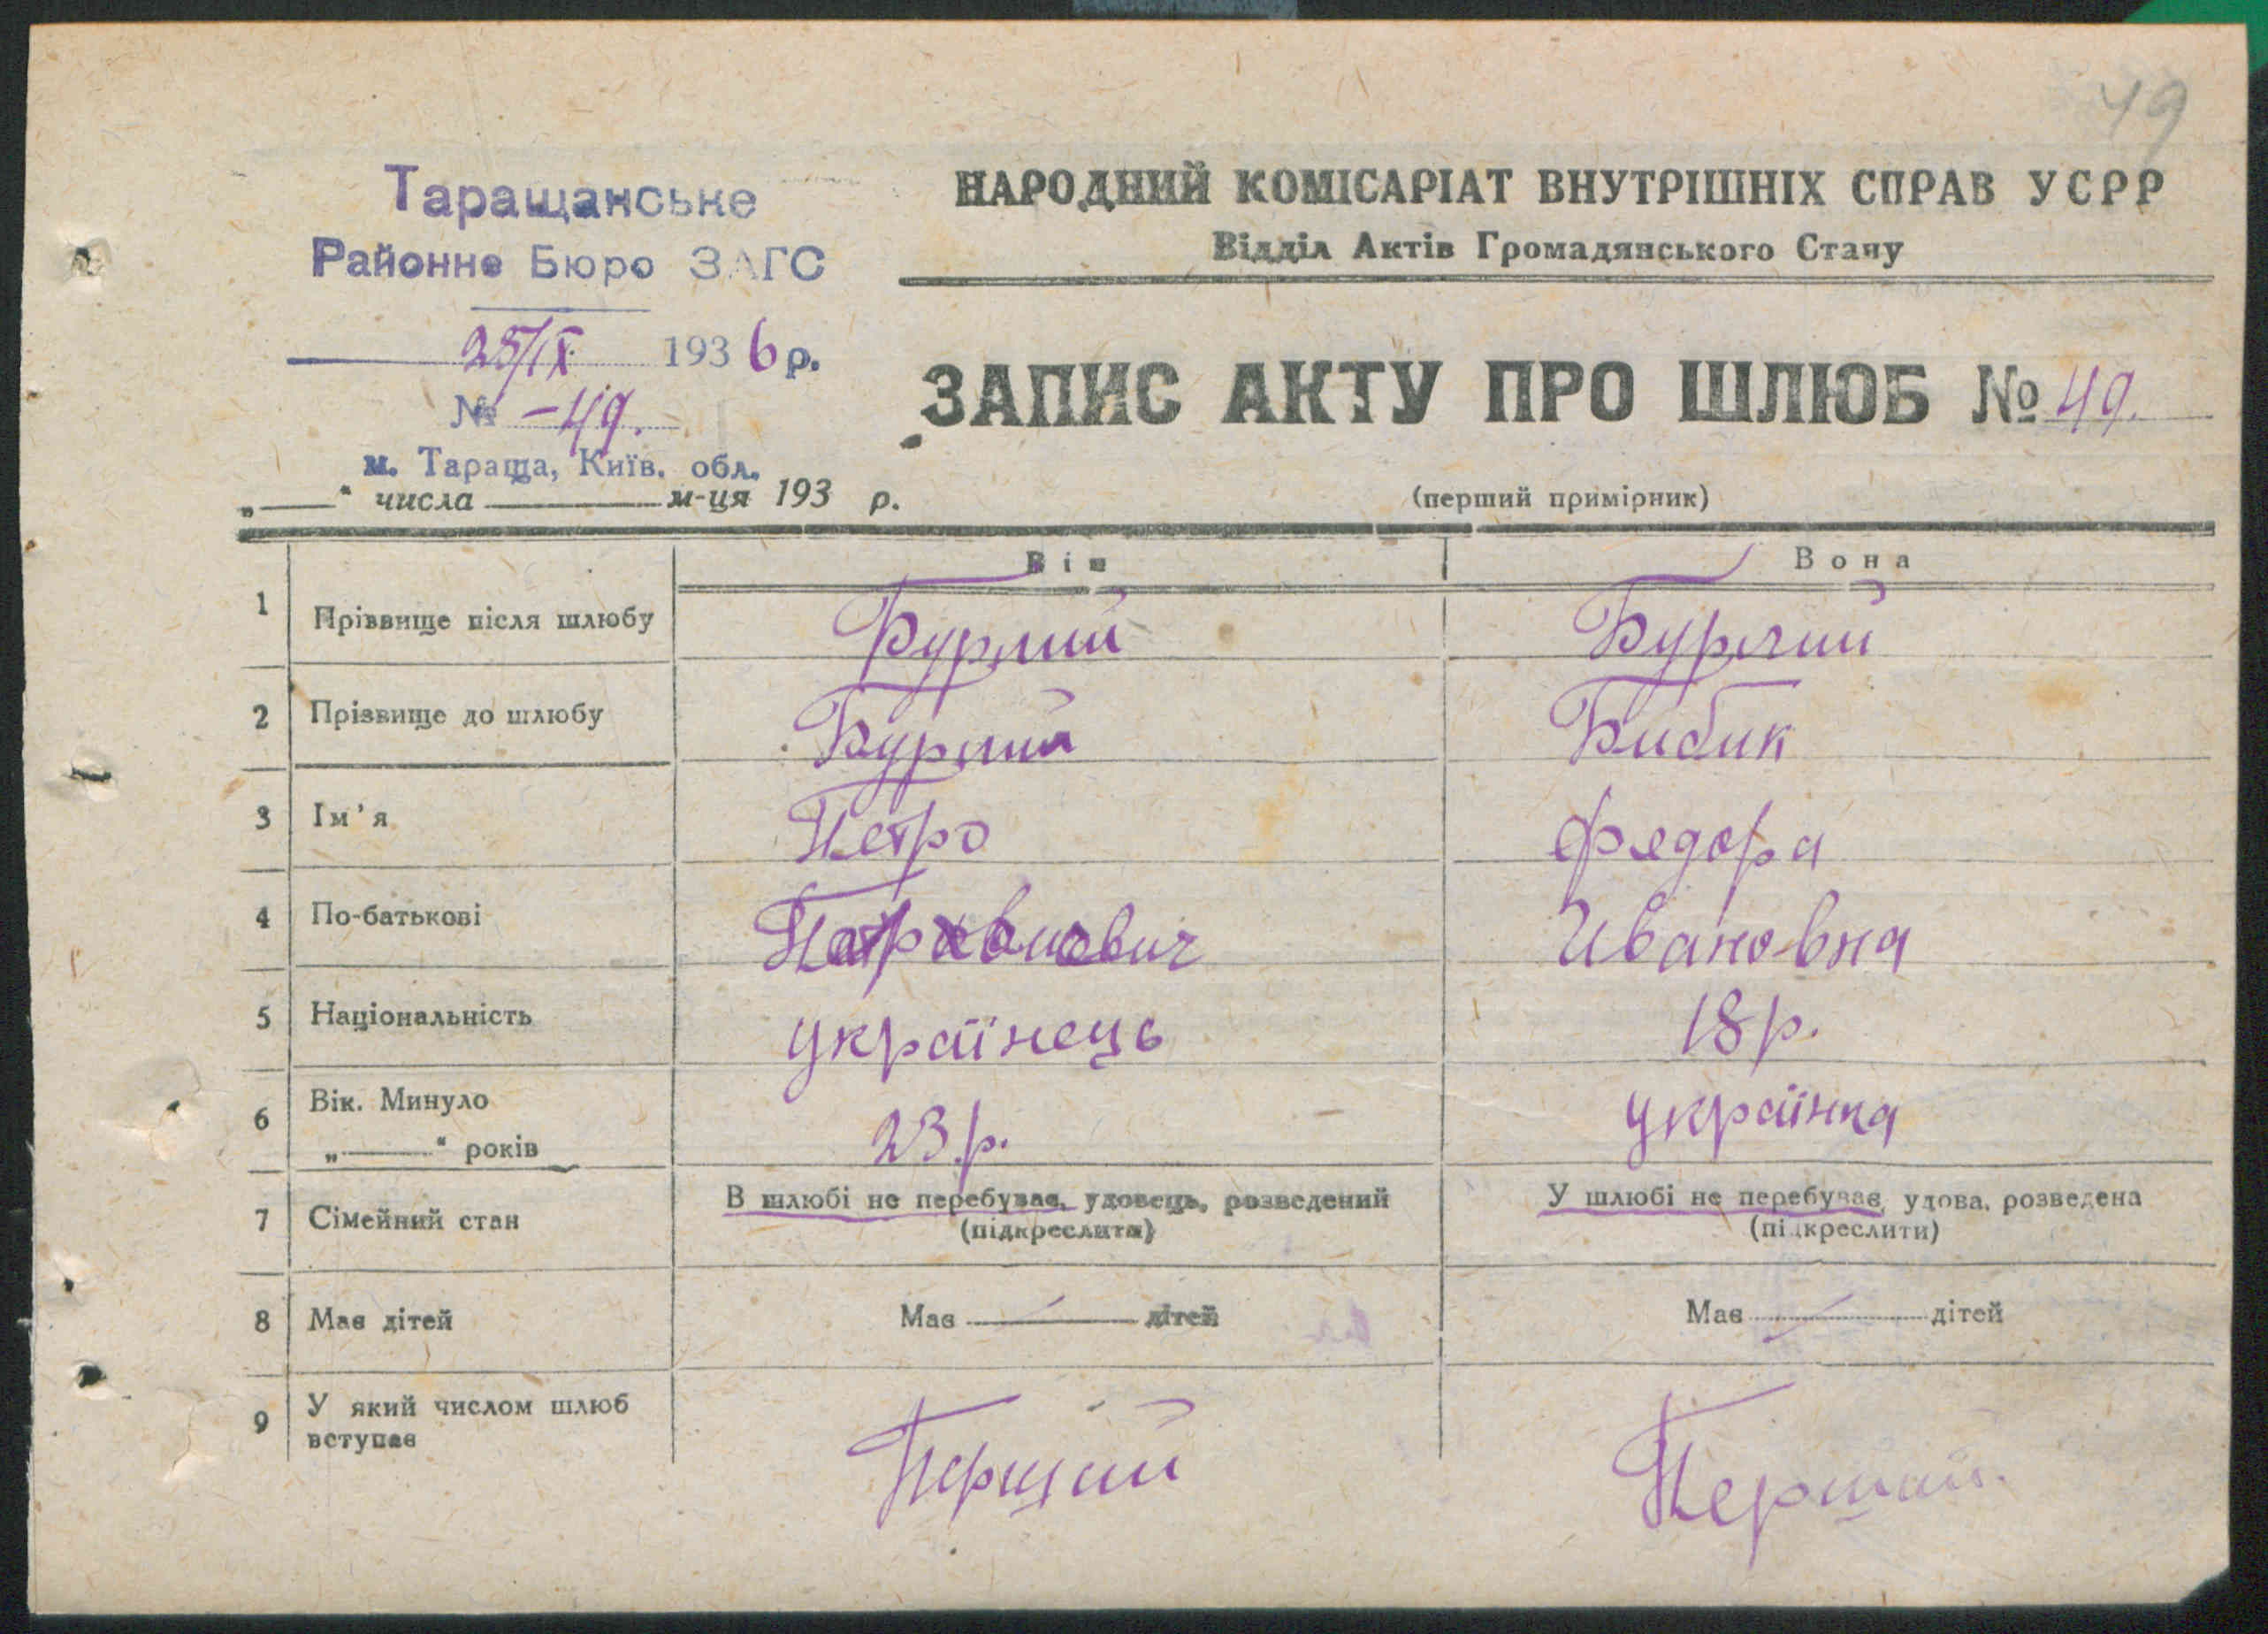 49
Таращанське
Районне Бюро ЗАГС
25/IX 1936 р.
№ -49.
м. Тараща, Київ. обл.
„—“ числа — м-ця 193 р.
НАРОДНИЙ КОМІСАРІАТ ВНУТРІШНІХ СПРАВ УСРР
Відділ Актів Громадянського Стану
ЗАПИС АКТУ ПРО ШЛЮБ № 49.
(перший примірник)
Він Вона
1 Пріввище після шлюбу Бурлий Бурлий
2 Прізвище до шлюбу Бурлий Бибик
3 Ім'я Петро Федора
4 По-батькові Ивановна
5 Національність українець 18 р.
6 Вік. Минуло 23 р. українка
„—“ років
7 Сімейний стан В шлюбі не перебуває, удовець, розведений У шлюбі не перебуває, удова, розведена
(підкреслити) (підкреслити)
8 Має дітей Має — дітей Має — дітей
9 У який числом шлюб
вступає Перщий Першай.